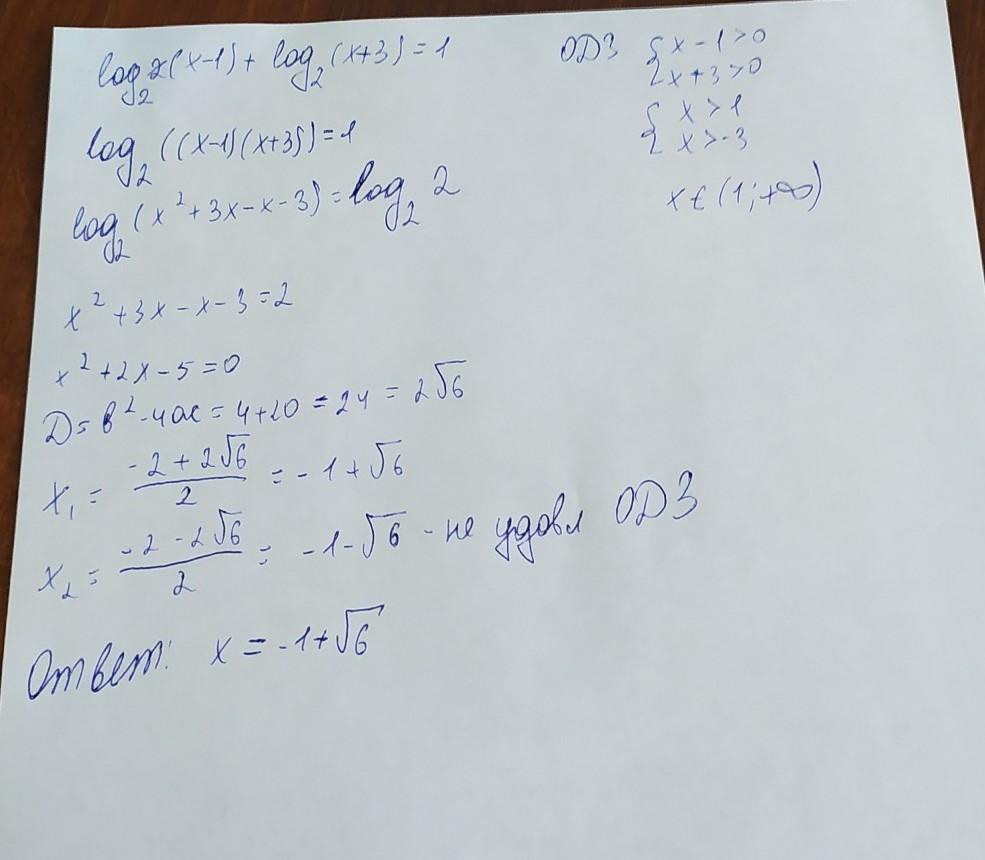 log₂(x-1) + log₂(x+3) = 1
ОДЗ { x-1>0
{ x+3>0
{ x>1
{ x>-3
x ∈ (1; +∞)
log₂((x-1)(x+3)) = 1
log₂(x²+3x-x-3) = log₂ 2
x²+3x-x-3=2
x²+2x-5=0
D = b²-4ac = 4+20 = 24 = 2√6
x₁ = (-2+2√6)/2 = -1+√6
x₂ = (-2-2√6)/2 = -1-√6 - не удовл ОДЗ
Ответ: x = -1+√6